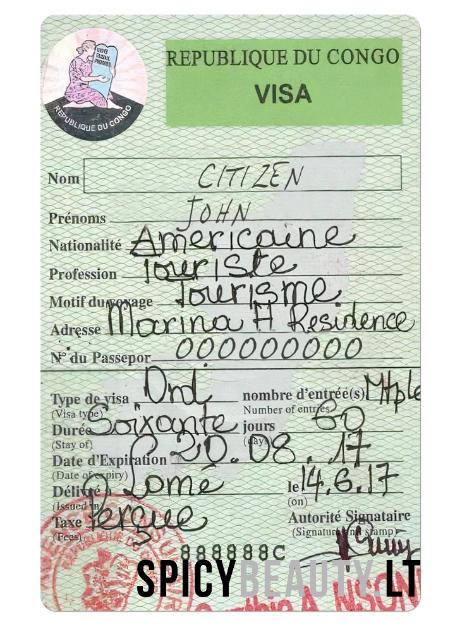 REPUBLIQUE DU CONGO
VISA
REPUBLIQUE DU CONGO
Nom CITIZEN
Prénoms JOHN
Nationalité Américaine
Profession Touriste
Motif du voyage Tourisme
Adresse Marina H Residence
N° du Passepor 000000000
Type de visa Ord nombre d'entrée(s) Mtple
(Visa type) Number of entries
Durée Soixante jours 60
(Stay of) (day)
Date d'Expiration 20.08.17
(Date of expiry)
Délivré à Lomé le 14.6.17
(Issued in) (on)
Taxe Perçue Autorité Signataire
(Fees) (Signature and stamp)
888888C
SPICYBEAUTY LT